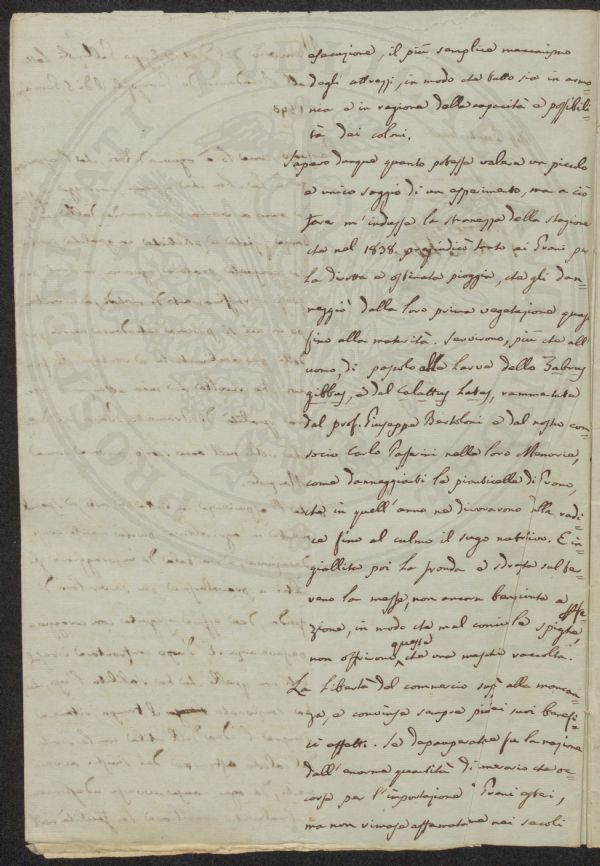 esecuzione, il più semplice meccanismo
degli attrezzi, in modo che tutto sia in armo=
nia e in ragione della capacità e possibili=
tà dei coloni.
Sapevo dunque quanto potesse valere un piccolo
e unico saggio di un esperimento, ma a ciò
fare m'indusse la stranezza della stagione
che nel 1838. pregiudicò tanto ai Grani per
la dirotta e ostinata pioggia, che gli dan=
neggiò dalla loro prima vegetazione quasi
fino alla maturità. Servirono, più che all'
uomo, di pascolo alla Larva dello Zabrus
gibbus, e del Calattus Latus, rammentate
dal prof. Giuseppe Bertoloni e dal nostro con
socio Carlo Passerini nelle loro Memorie,
come danneggianti le pianticelle di Grano,
che in quell'anno ne divoravono dalla radi=
ce fino al culmo il sugo nutritivo. E in=
giallite poi la fronda e sdraiata sul ter=
reno la messe, non ancora
zione, in modo che mal conciale spighe,
non offrirono queste che una meschina raccolta.
La libertà del commercio soprì alla mancan=
za, e convinse sempre più dei suoi benefi=
ci effetti. Se depauperata fu la nazione
dall'enorme quantità di numerario che oc=
corse per l'importazione Grani esteri,
ma non rimase affamata come nei secoli